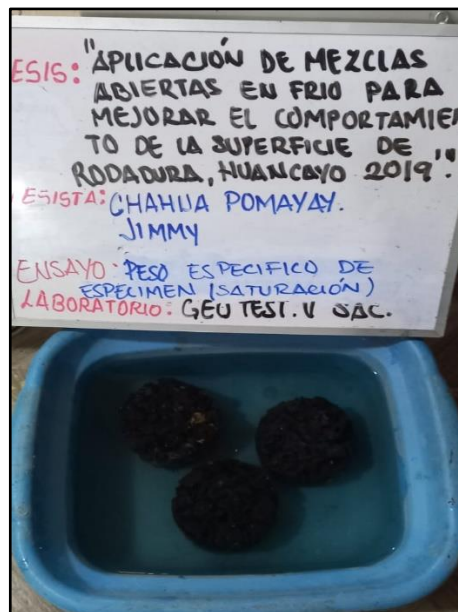 ESIS: "APLICACIÓN DE MEZCLAS
ABIERTAS EN FRIO PARA
MEJORAR EL COMPORTAMIEN
TO DE LA SUPERFICIE DE
RODADURA, HUANCAYO 2019".
ESISTA: CHAHUA POMAYAY.
JIMMY
ENSAYO: PESO ESPECIFICO DE
ESPECIMEN (SATURACIÓN)
LABORATORIO: GEO TEST. V SAC.